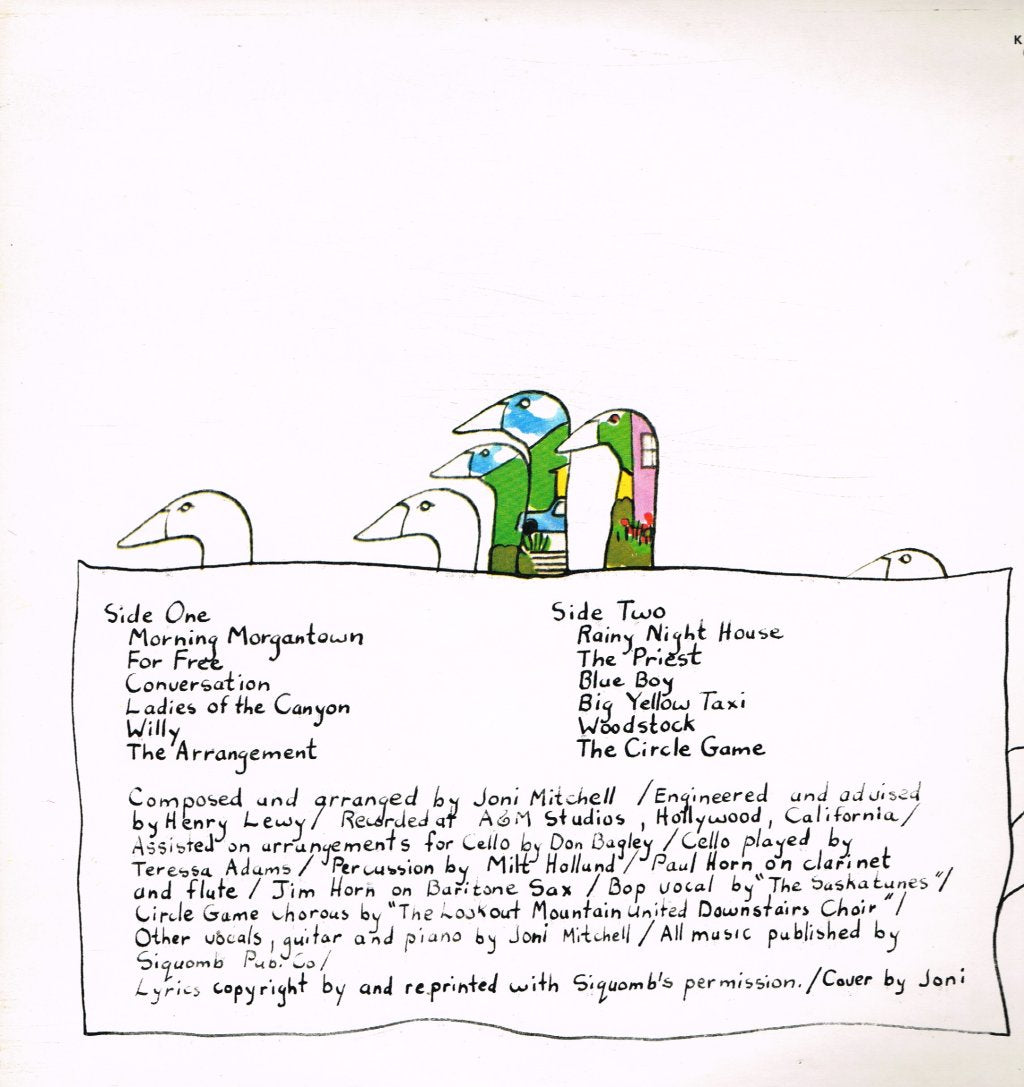 K
Side One
Morning Morgantown
For Free
Conversation
Ladies of the Canyon
Willy
The Arrangement
Side Two
Rainy Night House
The Priest
Blue Boy
Big Yellow Taxi
Woodstock
The Circle Game
Composed and arranged by Joni Mitchell / Engineered and advised
by Henry Lewy / Recorded at A&M Studios, Hollywood, California /
Assisted on arrangements for Cello by Don Bagley / Cello played by
Teressa Adams / Percussion by Milt Holland / Paul Horn on clarinet
and flute / Jim Horn on Baritone Sax / Bop vocal by "The Saskatunes" /
Circle Game Chorous by "The Lookout Mountain United Downstairs Choir" /
Other vocals, guitar and piano by Joni Mitchell / All music published by
Siquomb Pub. Co /
Lyrics copyright by and reprinted with Siquomb's permission. / Cover by Joni